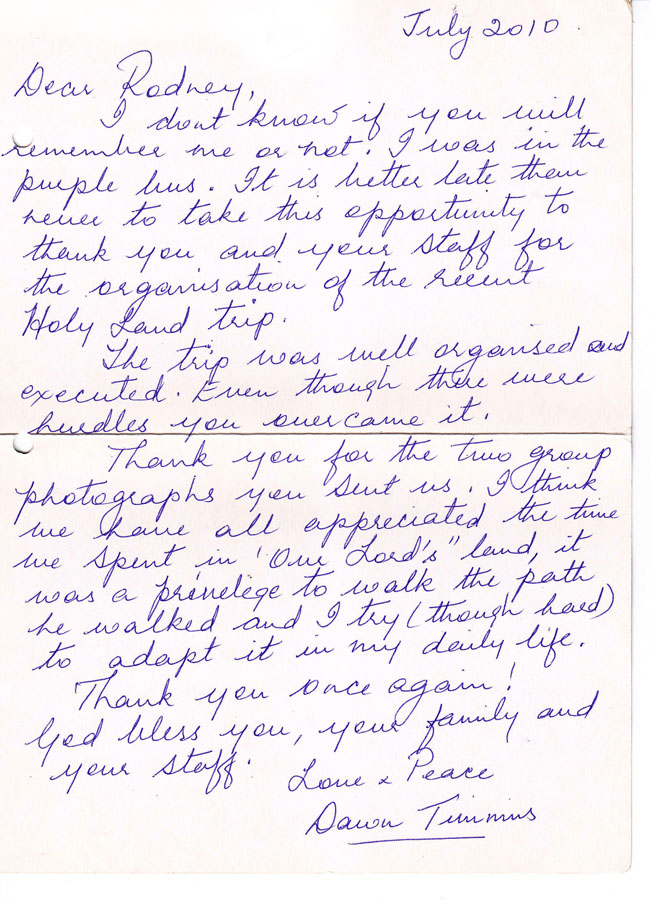 July 2010.
Dear Rodney,
I dont know if you will
remember me or not. I was in the
purple bus. It is better late than
never to take this opportunity to
thank you and your staff for
the organisation of the recent
Holy Land trip.
The trip was well organised and
executed. Even though there were
hurdles you overcame it.
Thank you for the two group
photographs you sent us. I think
we have all appreciated the time
we spent in 'Our Lord's" land, it
was a privelege to walk the path
he walked and I try (though hard)
to adapt it in my daily life.
Thank you once again!
God bless you, your family and
your staff.
Love & Peace
Dawn Timmins